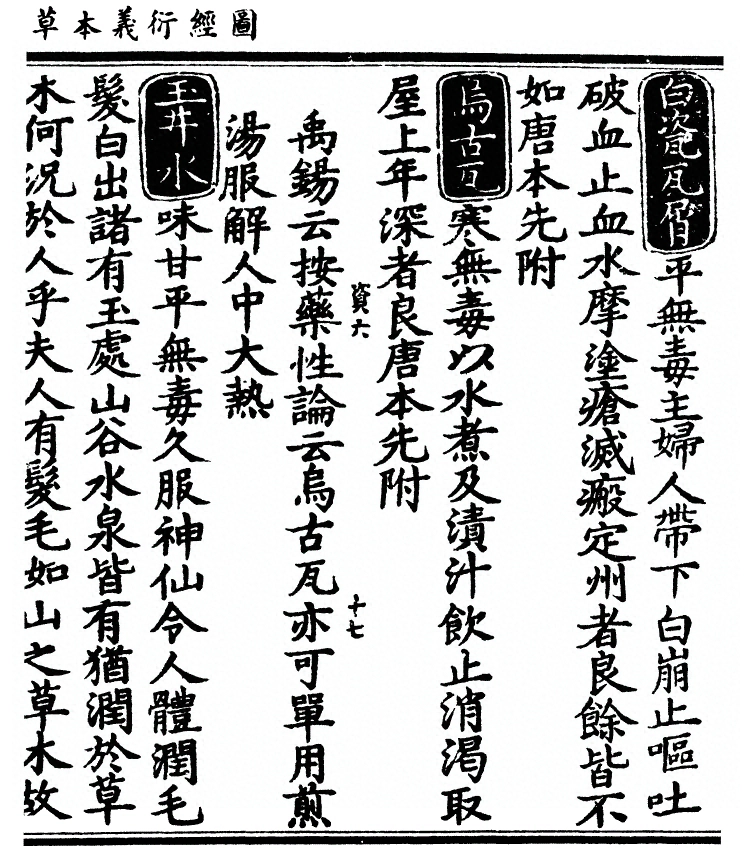 圖經衍義本草
白瓷瓦屑平無毒主婦人帶下白崩止嘔吐
破血止血水摩塗瘡滅瘢定州者良餘皆不
如唐本先附
烏古瓦寒無毒以水煮及漬汁飲止消渴取
屋上年深者良唐本先附
資六
十七
禹錫云按藥性論云烏古瓦亦可單用煎
湯服解人中大熱
玉井水味甘平無毒久服神仙令人體潤毛
髮白出諸有玉處山谷水泉皆有猶潤於草
木何況於人乎夫人有髮毛如山之草木故